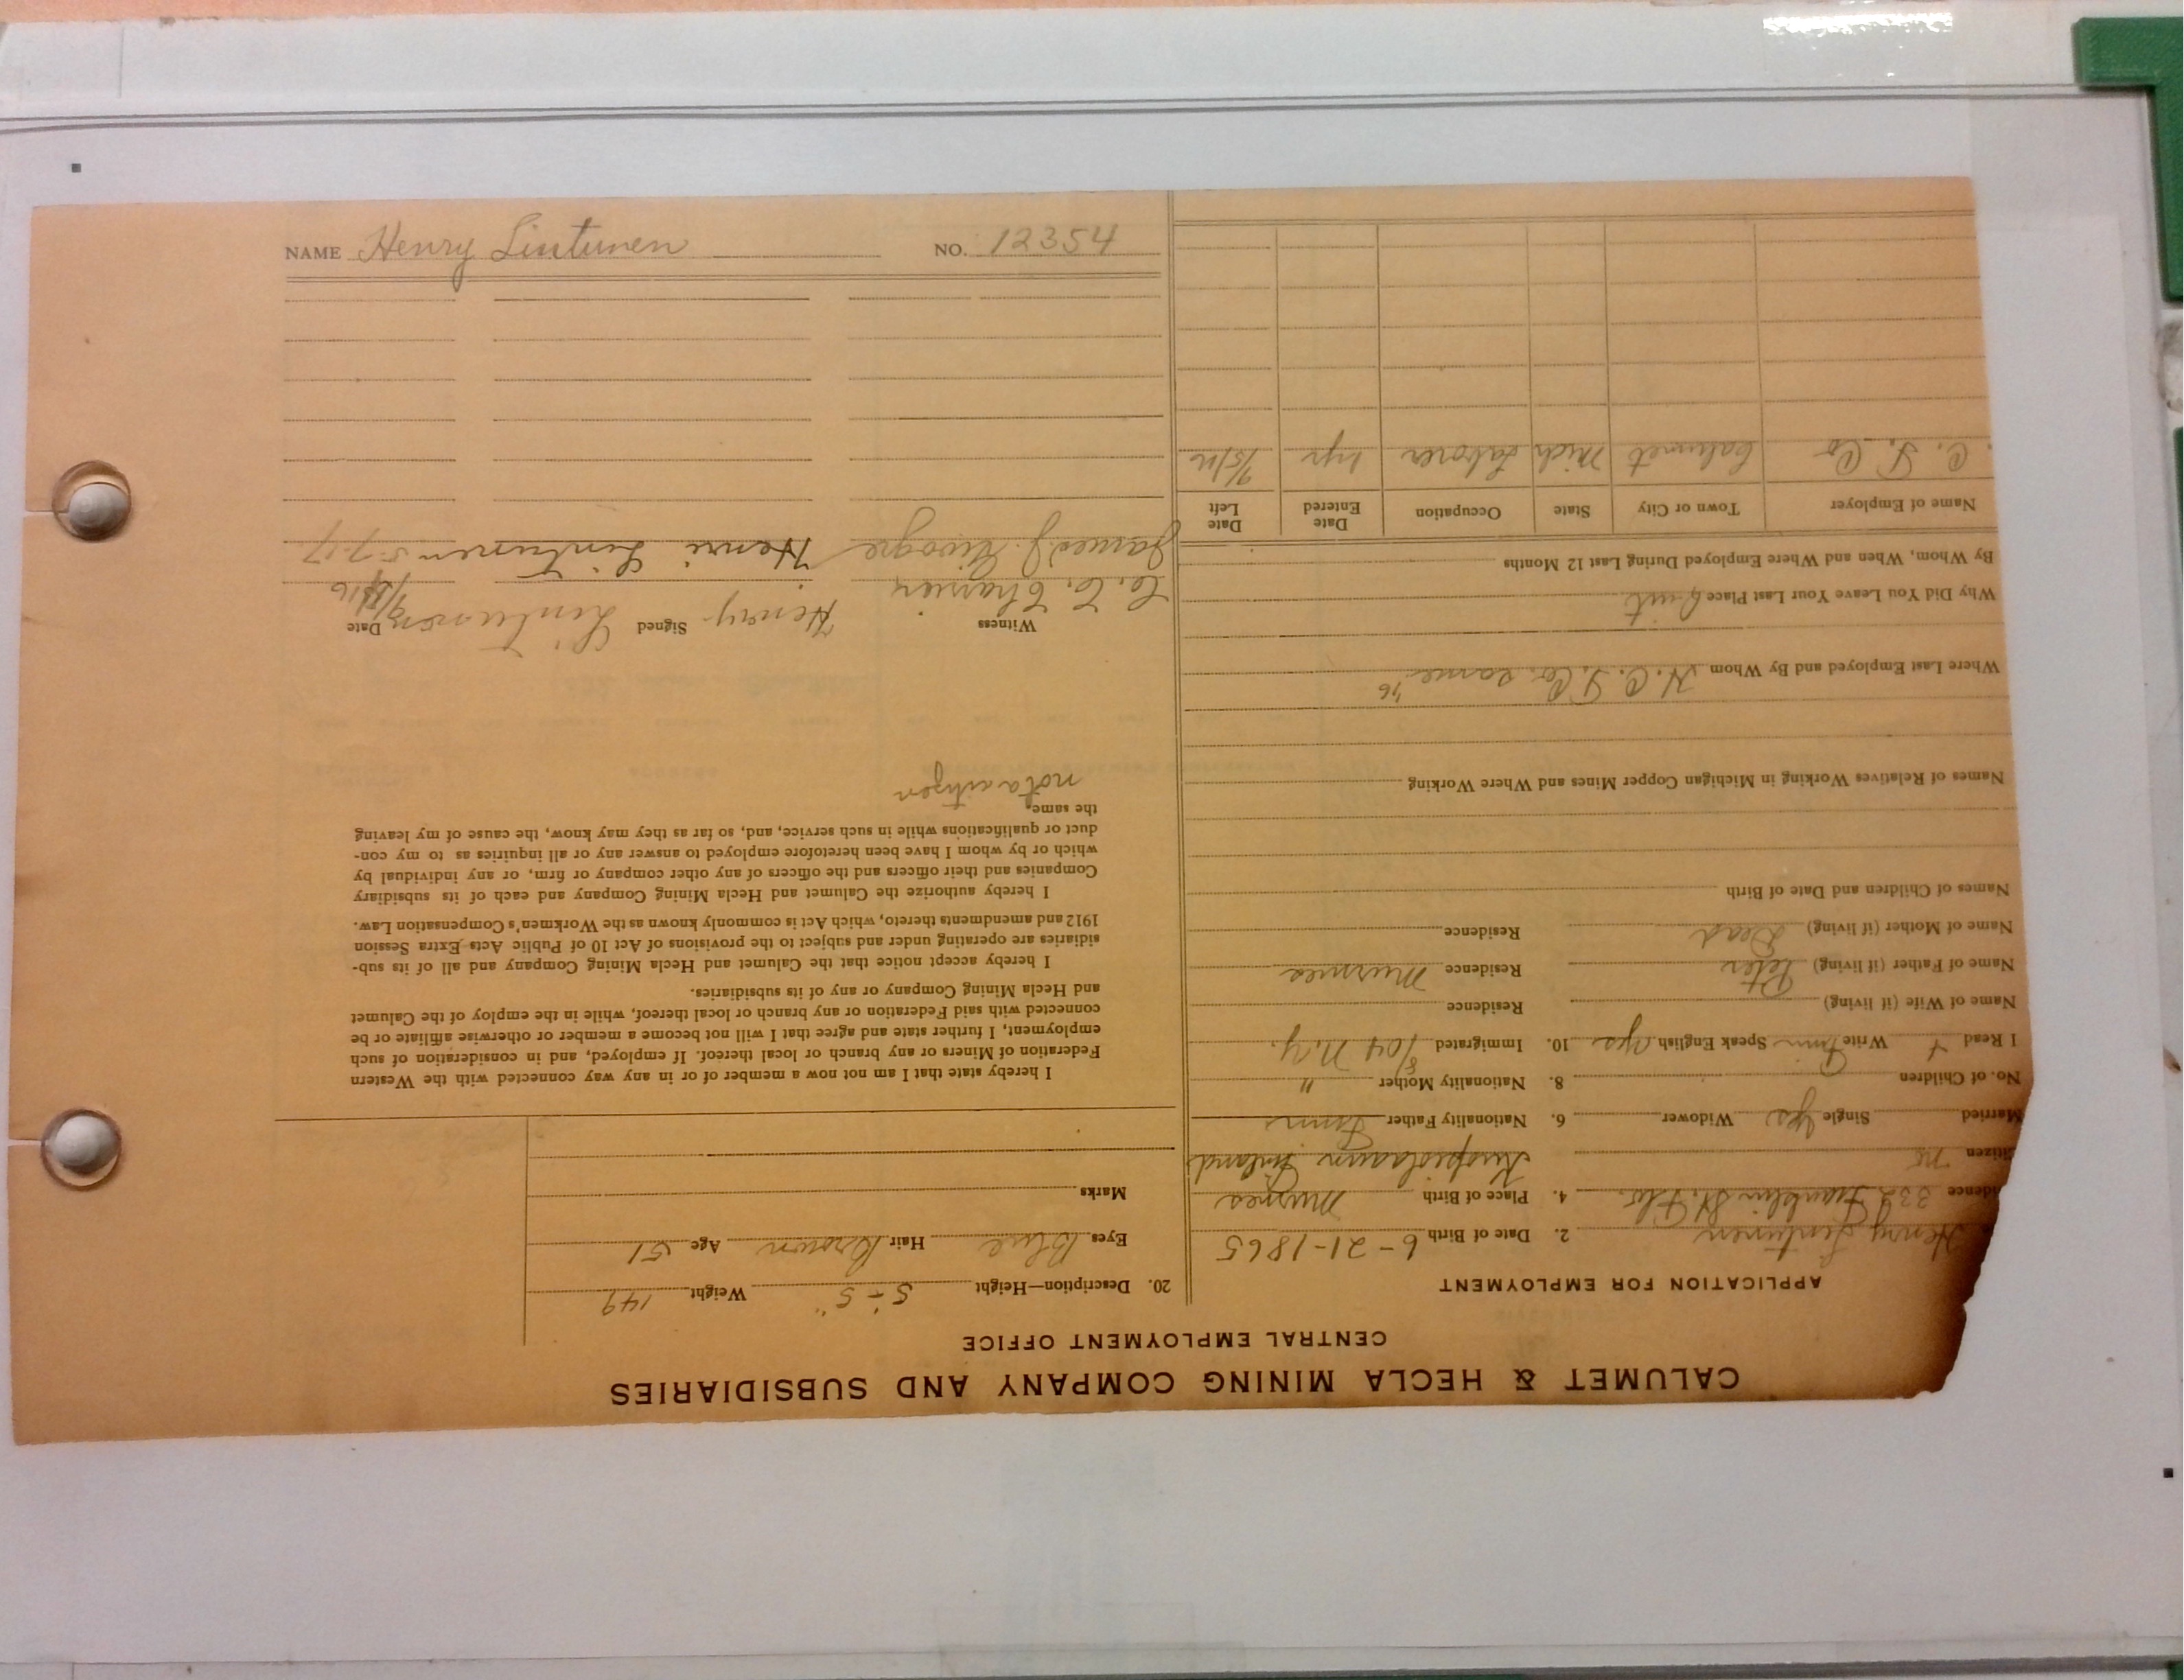 CALUMET & HECLA MINING COMPANY AND SUBSIDIARIES
CENTRAL EMPLOYMENT OFFICE
APPLICATION FOR EMPLOYMENT
Henry Lintunen 2. Date of Birth 6-21-1865
idence 332 Franklin St. Flo. 4. Place of Birth
itizen no Finland
Married Single yes Widower 6. Nationality Father Finn
No. of Children 8. Nationality Mother "
I Read + Write Finn Speak English yes 10. Immigrated 8/04 N.Y.
Name of Wife (if living) Residence
Name of Father (if living) Peter Residence
Name of Mother (if living) Dead Residence
Names of Children and Date of Birth
Names of Relatives Working in Michigan Copper Mines and Where Working
Where Last Employed and By Whom Co. same '16
Why Did You Leave Your Last Place Quit
By Whom, When and Where Employed During Last 12 Months
Name of Employer Town or City State Occupation Date Entered Date Left
Co Calumet Mich Laborer 1 yr
20. Description—Height 5'-5" Weight 149
Eyes Blue Hair Brown Age 51
Marks
I hereby state that I am not now a member of or in any way connected with the Western
Federation of Miners or any branch or local thereof. If employed, and in consideration of such
employment, I further state and agree that I will not become a member or otherwise affiliate or be
connected with said Federation or any branch or local thereof, while in the employ of the Calumet
and Hecla Mining Company or any of its subsidiaries.
I hereby accept notice that the Calumet and Hecla Mining Company and all of its sub-
sidiaries are operating under and subject to the provisions of Act 10 of Public Acts Extra Session
1912 and amendments thereto, which Act is commonly known as the Workmen's Compensation Law.
I hereby authorize the Calumet and Hecla Mining Company and each of its subsidiary
Companies and their officers and the officers of any other company or firm, or any individual by
which or by whom I have been heretofore employed to answer any or all inquiries as to my con-
duct or qualifications while in such service, and, so far as they may know, the cause of my leaving
the same.
not a citizen
Witness Signed Date
C. C. Henry Lintunen
James J. Henri Lintunen 5-7-17
NAME Henry Lintunen NO. 12354